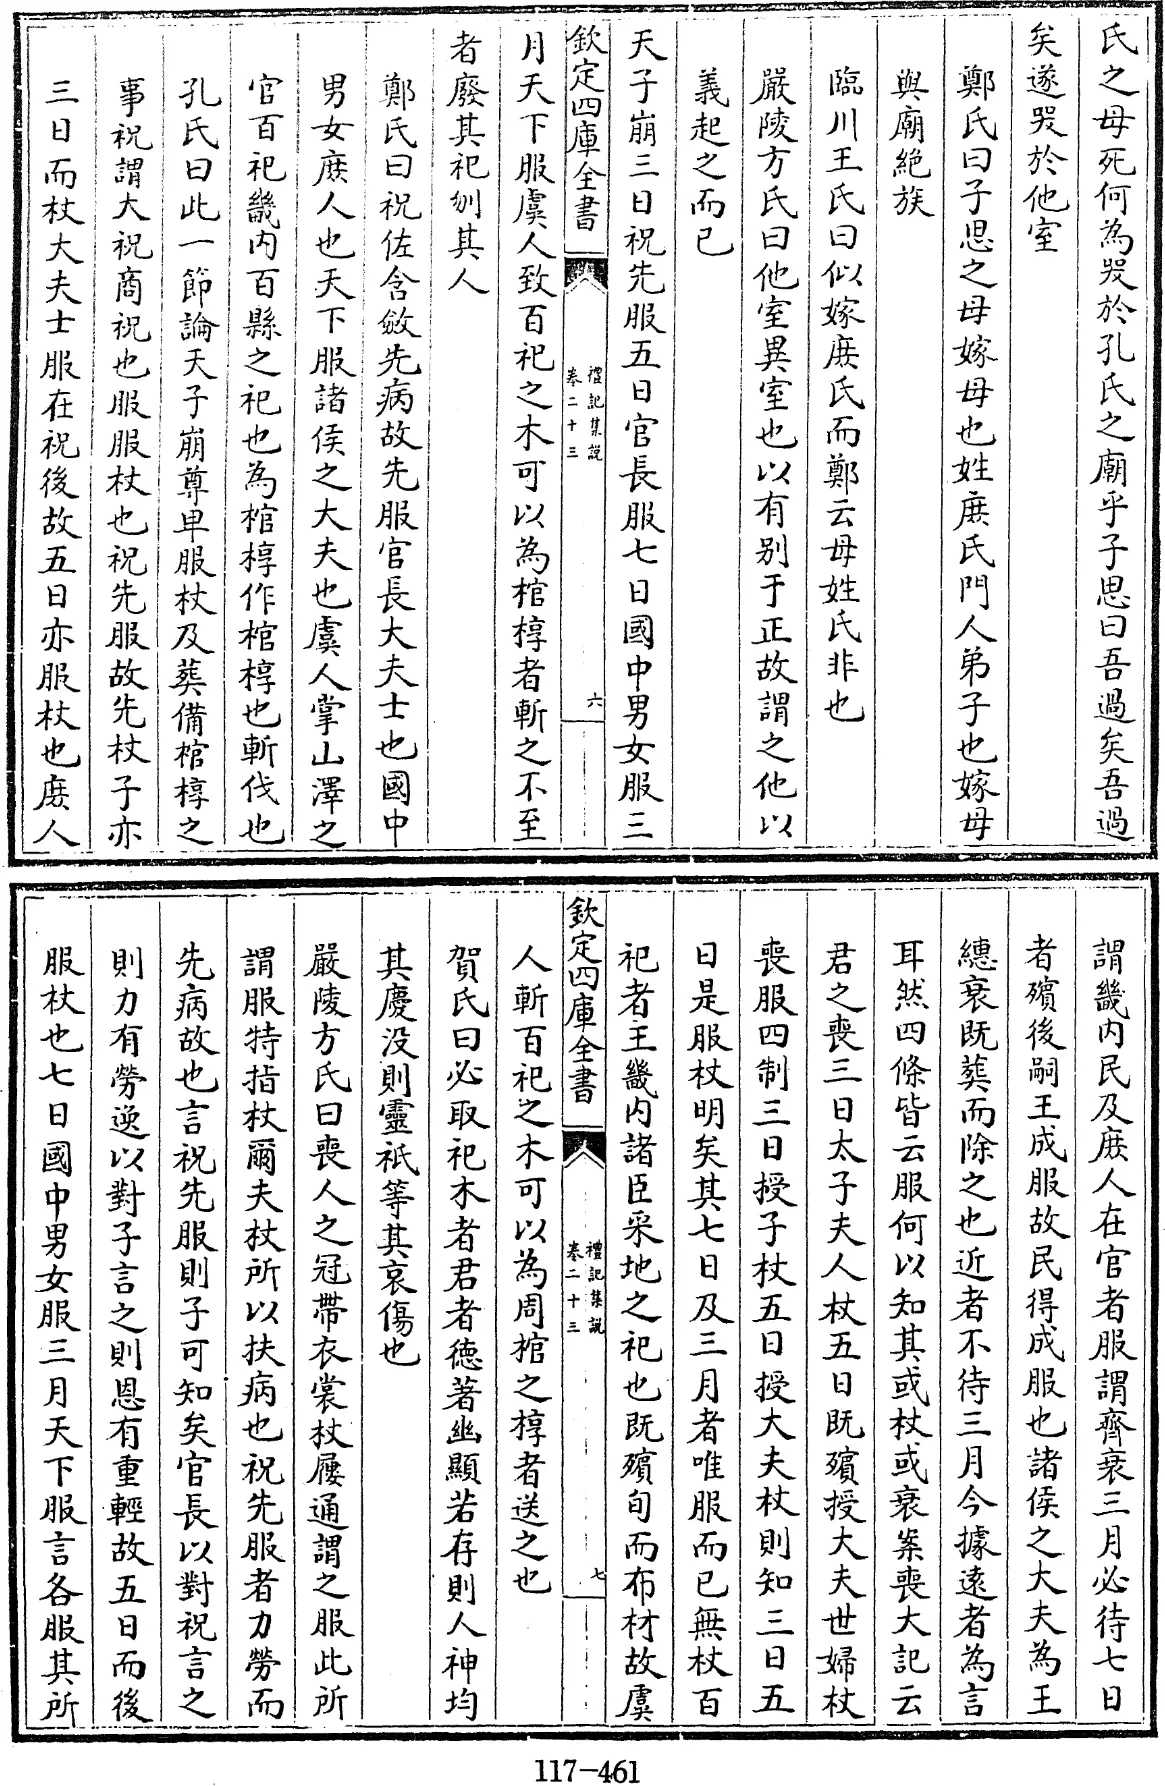 氏之母死何為哭於孔氏之廟乎子思曰吾過矣吾過
矣遂哭於他室
鄭氏曰子思之母嫁母也姓庶氏門人弟子也嫁母
與廟絶族
臨川王氏曰似嫁庶氏而鄭云母姓氏非也
嚴陵方氏曰他室異室也以有别于正故謂之他以
義起之而已
天子崩三日祝先服五日官長服七日國中男女服三
欽定四庫全書
禮記集說
卷二十三
六
月天下服虞人致百祀之木可以為棺椁者斬之不至
者廢其祀刎其人
鄭氏曰祝佐含斂先病故先服官長大夫士也國中
男女庶人也天下服諸侯之大夫也虞人掌山澤之
官百祀畿内百縣之祀也為棺椁作棺椁也斬伐也
孔氏曰此一節論天子崩尊卑服杖及葬備棺椁之
事祝謂大祝商祝也服服杖也祝先服故先杖子亦
三日而杖大夫士服在祝後故五日亦服杖也庶人
謂畿内民及庶人在官者服謂齊衰三月必待七日
者殯後嗣王成服故民得成服也諸侯之大夫為王
繐衰既葬而除之也近者不待三月今據遠者為言
耳然四條皆云服何以知其或杖或衰案喪大記云
君之喪三日太子夫人杖五日既殯授大夫世婦杖
喪服四制三日授子杖五日授大夫杖則知三日五
日是服杖明矣其七日及三月者唯服而已無杖百
祀者主畿内諸臣采地之祀也既殯旬而布材故虞
欽定四庫全書
禮記集說
卷二十三
七
人斬百祀之木可以為周棺之椁者送之也
賀氏曰必取祀木者君者德著幽顯若存則人神均
其慶没則靈祇等其哀傷也
嚴陵方氏曰喪人之冠帶衣裳杖屨通謂之服此所
謂服特指杖爾夫杖所以扶病也祝先服者力勞而
先病故也言祝先服則子可知矣官長以對祝言之
則力有勞逸以對子言之則恩有重輕故五日而後
服杖也七日國中男女服三月天下服言各服其所
117-461